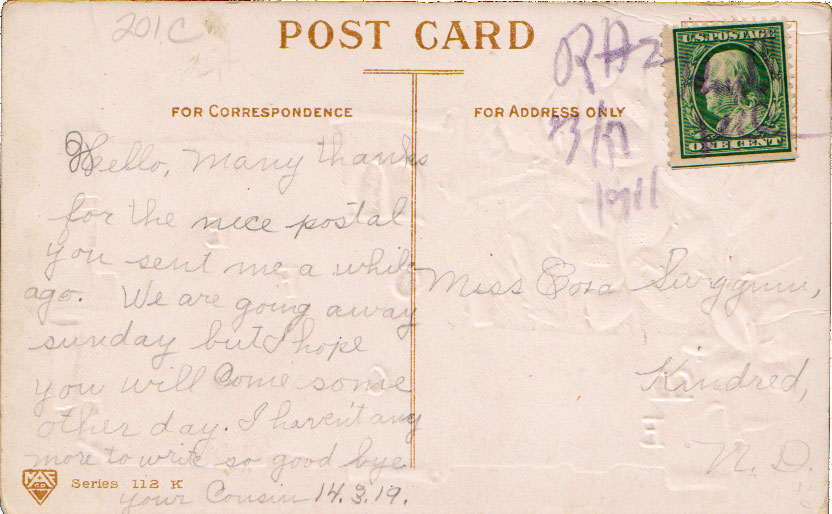 201C
POST CARD
U.S. POSTAGE
ONE CENT
1911
FOR CORRESPONDENCE
FOR ADDRESS ONLY
Hello, Many thanks
for the nice postal
you sent me a while
ago. We are going away
sunday but I hope
you will Come some
other day. I haven't any
more to write so good bye
your Cousin 14.3.19.
Miss
Kindred,
N. D.
Series 112 K